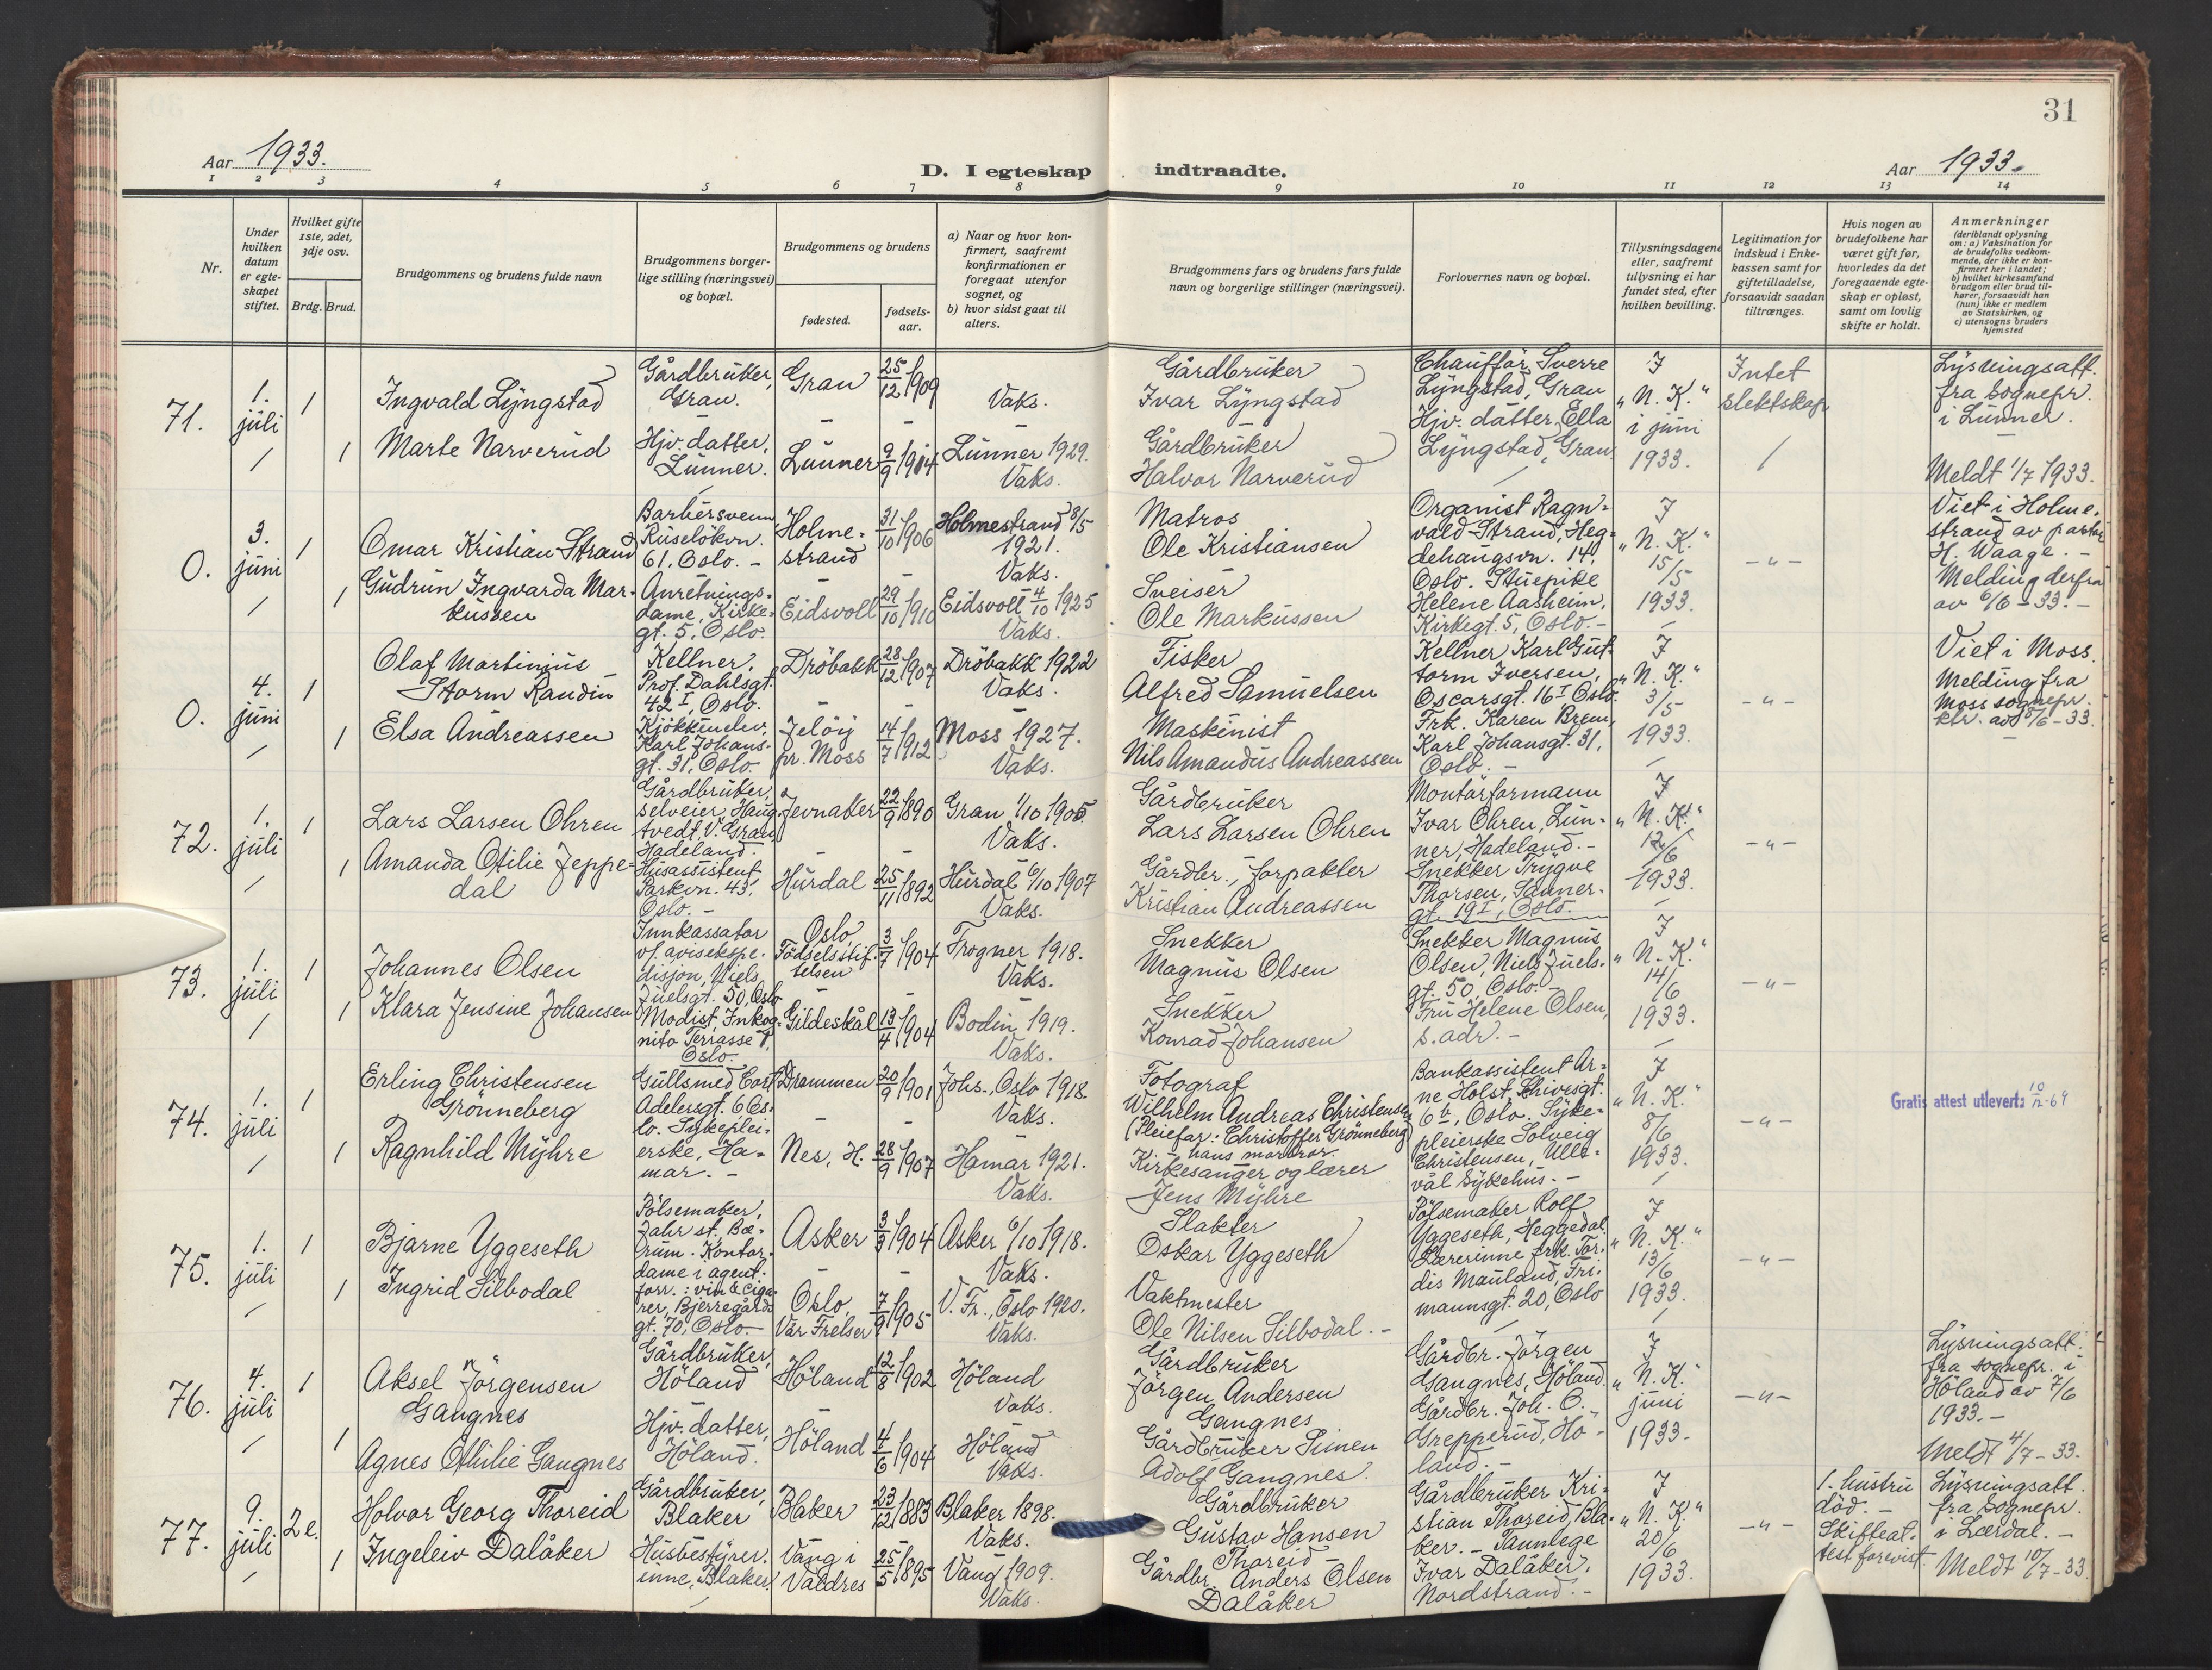 31
Aar 1933.
D. I egteskap indtraadte.
Aar 1933.
1 2 3 4 5 6 7 8 9 10 11 12 13 14
Nr.
Under hvilken datum er egteskapet stiftet.
Hvilket gifte 1ste, 2det, 3dje osv.
Brdg. Brud.
Brudgommens og brudens fulde navn
Brudgommens borgerlige stilling (næringsvei) og bopæl.
Brudgommens og brudens
fødested.
fødselsaar.
a) Naar og hvor konfirmert, saafremt konfirmationen er foregaat utenfor sognet, og
b) hvor sidst gaat til alters.
Brudgommens fars og brudens fars fulde navn og borgerlige stillinger (næringsvei).
Forlovernes navn og bopæl.
Tillysningsdagene eller, saafremt tillysning ei har fundet sted, efter hvilken bevilling.
Legitimation for indskud i Enkekassen samt for giftetilladelse, forsaavidt saadan tiltrænges.
Hvis nogen av brudefolkene har været gift før, hvorledes da det foregaaende egteskap er opløst, samt om lovlig skifte er holdt.
Anmerkninger
(deriblandt oplysning om: a) Vaksination for de brudefolks vedkommende, der ikke er konfirmert her i landet; b) hvilket kirkesamfund brudgom eller brud tilhører, forsaavidt han (hun) ikke er medlem av Statskirken, og c) utensogns bruders hjemsted
71. 1. juli 1
Ingvald Lyngstad
Gårdbruker, Gran.
Gran 25/12 1909
Vaks.
Gårdbruker
Ivar Lyngstad
Chauffør Sverre Lyngstad, Gran
Hjv. datter Ella Lyngstad, Gran
I "N. K." i juni 1933.
Intet slektskap
Lysningsatt. fra sognepr. i Lunner.
Meldt 1/7 1933.
1 Marte Narverud
Hjv. datter, Lunner.
Lunner 9/9 1914
Lunner 1929. Vaks.
Gårdbruker
Halvor Narverud
0. 3. juni 1
Omar Kristian Strand
Barbersvenn, Ruseløkvn. 61. Oslo. -
Holmestrand 31/10 1906
Holmestrand 8/5 1921. Vaks.
Matros
Ole Kristiansen
Organist Ragnvald Strand, Hegdehaugsvn. 14, Oslo. Stuepike Helene Aasheim, Kirkegt. 5, Oslo. -
I "N. K." 15/5 1933.
- " -
Viet i Holmestrand av pastor H. Waage. -
Melding derfra av 6/6 - 33. -
1 Gudrun Ingvarda Markussen
Anretningsdame, Kirkegt. 5, Oslo.
Eidsvoll 29/10 1910
Eidsvoll 4/10 1925 Vaks.
Sveiser
Ole Markussen
0. 4. juni 1
Olaf Martinius Storm Raudin
Kellner, Prof. Dahlsgt. 42 I, Oslo.
Drøbakk 28/12 1907
Drøbakk 1922 Vaks.
Fisker
Alfred Samuelsen
Kellner Karl Guttorm Iversen, Oscarsgt. 16 I Oslo.
Frk. Karen Brem, Karl Johansgt. 31, Oslo. -
I "N. K." 3/5 1933.
- " -
Viet i Moss.
Melding fra Moss sognepr. ktr. av 8/6 - 33.
1 Elsa Andreassen
Kjøkkenelev, Karl Johansgt. 31, Oslo.
Jeløy pr. Moss 14/7 1912
Moss 1927. Vaks.
Maskinist
Nils Amandus Andreassen
72. 1. juli 1
Lars Larsen Ohren
Gårdbruker, selveier, Haugtvedt, V. Gran, Hadeland.
Jevnaker 22/9 1890
Gran 1/10 1905. Vaks.
Gårdbruker
Lars Larsen Ohren
Montørformann Ivar Ohren, Lunner, Hadeland. -
Snekker Trygve Thorsen, Sannergt. 19 I, Oslo.
I "N. K." 12/6 1933.
- " -
1 Amanda Otilie Jeppedal
Husassistent Parkvn. 43, Oslo. -
Hurdal 25/11 1892
Hurdal 6/10 1907 Vaks.
Gårdbr., forpakter
Kristian Andreassen
73. 1. juli 1
Johannes Olsen
Innkassator v/ avisekspedisjon, Niels Juelsgt. 50, Oslo
Oslo, Fødselsstiftelsen 3/7 1904
Frogner 1918. Vaks.
Snekker
Magnus Olsen
Snekker Magnus Olsen, Niels Juelsgt. 50, Oslo. -
Fru Helene Olsen, s. adr. -
I "N. K." 14/6 1933.
- " -
1 Klara Jensine Johansen
Modist, Inkognito Terrasse 7, Oslo.
Gildeskål 13/4 1904
Bodin 1919. Vaks.
Snekker
Konrad Johansen
74. 1. juli 1
Erling Christensen Grønneberg
Gullsmed Cort Adelersgt. 6 Oslo.
Drammen 20/9 1901
Johs., Oslo 1918. Vaks.
Fotograf
Wilhelm Andreas Christensen
(Pleiefar: Christoffer Grønneberg) hans morbror.
Bankassistent Arne Holst, Schivesgt. 6 b, Oslo. Sykepleierske Solveig Christensen, Ullevål sykehus. -
I "N. K." 8/6 1933.
- " -
Gratis attest utlevert: 10/12-69
1 Ragnhild Myhre
Sykepleierske, Hamar. -
Nes, H. 28/9 1907
Hamar 1921. Vaks.
Kirkesanger og lærer
Jens Myhre
75. 1. juli 1
Bjarne Yggeseth
Pølsemaker, Jahr st. Bærum.
Asker 3/3 1904
Asker 6/10 1918. Vaks.
Slakter
Oskar Yggeseth
Pølsemaker Rolf Yggeseth, Heggedal
Lærerinne frk. Tordis Mauland, Frimannsgt. 20, Oslo
I "N. K." 13/6 1933.
- " -
1 Ingrid Silbodal
Kontordame i agent. forr. i vin & cigarer, Bjerregårdsgt. 70, Oslo. -
Oslo, Vår Frelser 7/9 1905
V. Fr., Oslo 1920. Vaks.
Vaktmester
Ole Nilsen Silbodal. -
76. 4. juli 1
Aksel Jörgensen Gangnes
Gårdbruker, Höland
Höland 12/8 1902
Höland Vaks.
Gårdbruker
Jörgen Andersen Gangnes
Gårdbr. Jörgen Gangnes, Höland.
Gårdbr. Joh. O. Grepperud, Höland. -
I "N. K." juni 1933.
- " -
Lysningsatt. fra sognepr. i Höland av 7/6 1933. -
Meldt 4/7 - 33.
1 Agnes Othilie Gangnes
Hjv. datter, Höland.
Höland 4/6 1904
Höland Vaks.
Gårdbruker Simen Adolf Gangnes.
77. 9. juli 2 e.
Holvar Georg Thoreid
Gårdbruker, Blaker
Blaker 23/12 1883
Blaker 1898. Vaks.
Gårdbruker
Gustav Hansen Thoreid -
Gårdbruker Kristian Thoreid, Blaker. - Tannlege Ivar Dalåker, Nordstrand. -
I "N. K." 20/6 1933.
- " -
1. hustru död. - Skifteattest forevist.
Lysningsatt. fra sognepr. i Lærdal. -
Meldt 10/7 - 33.
1 Ingeleiv Dalåker
Husbestyrerinne, Blaker
Vang i Valdres 25/5 1895
Vang 1909. Vaks.
Gårdbr. Anders Olsen Dalåker